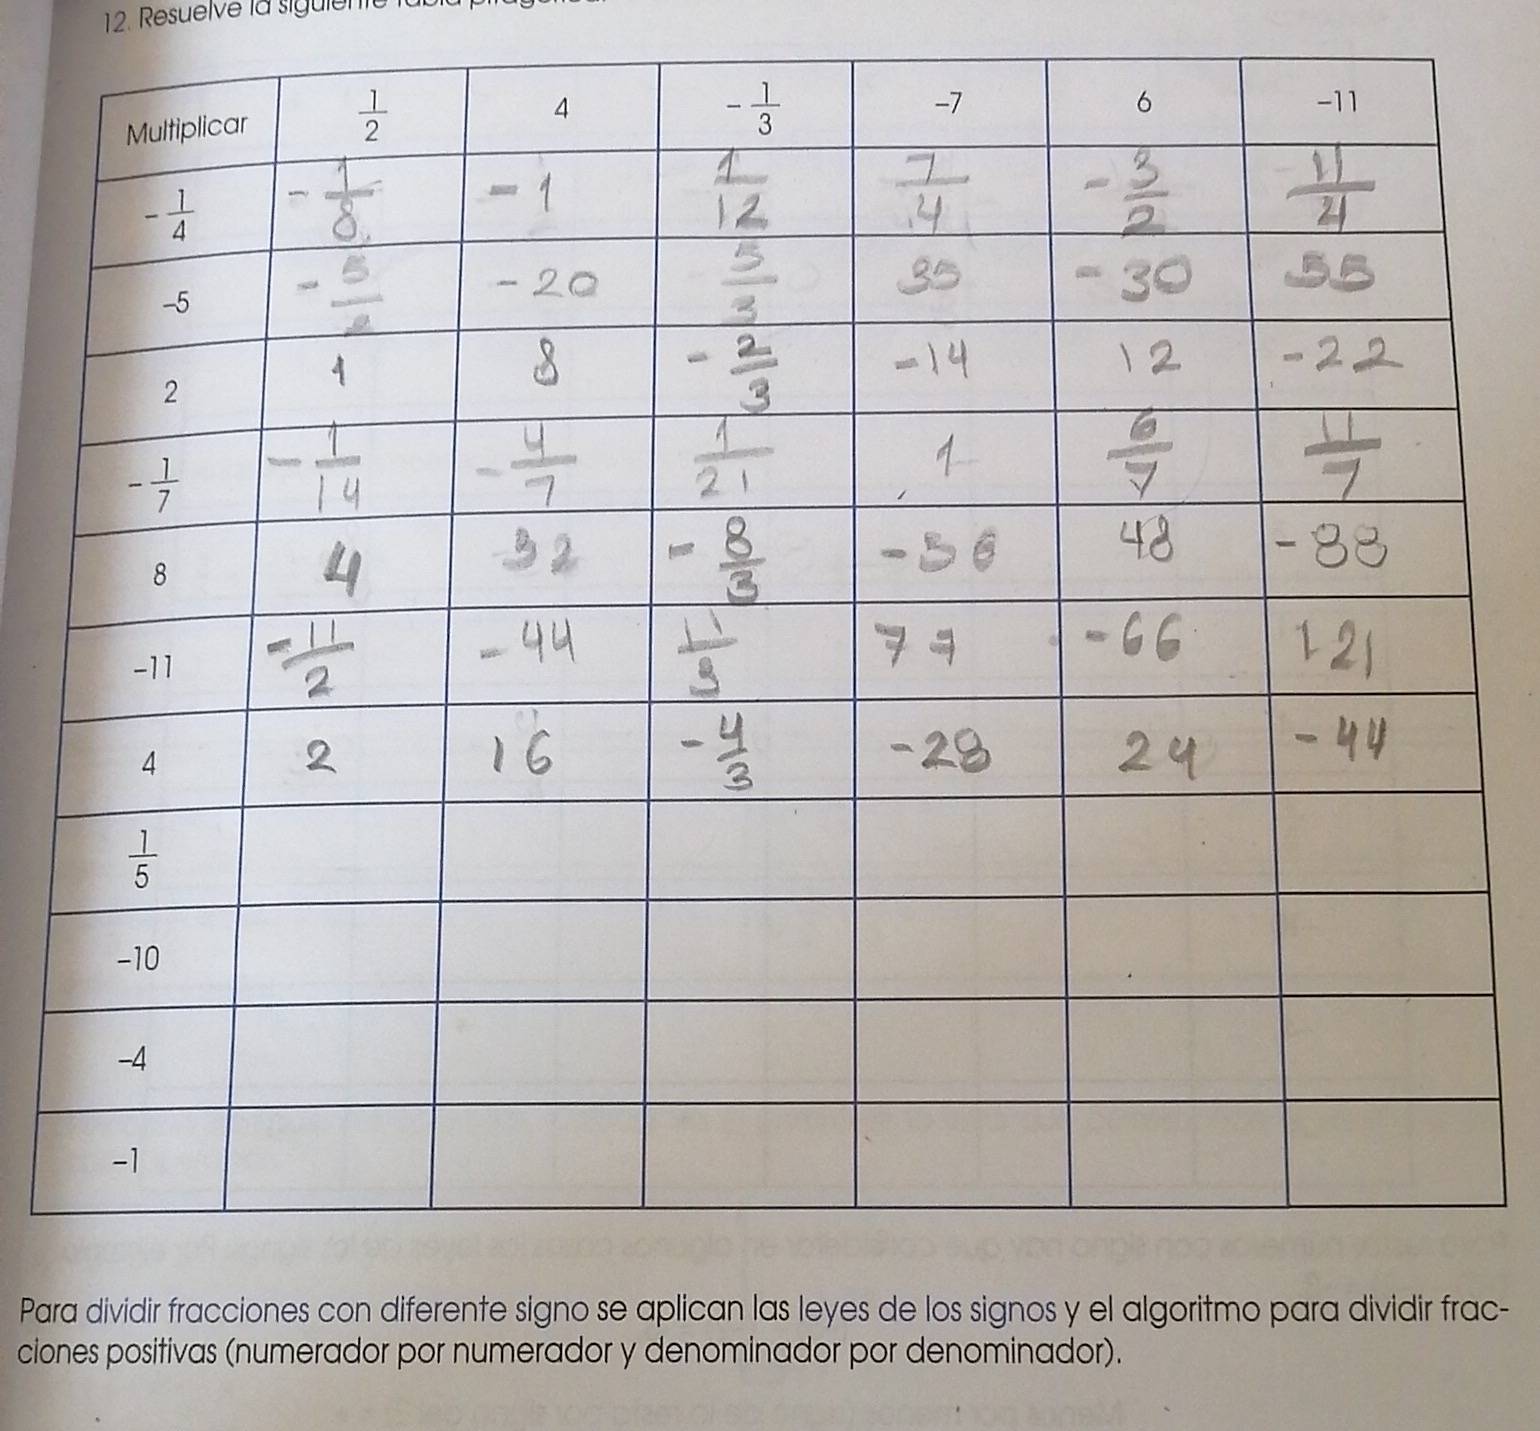 12. Resuelve la siguiente tabla
Multiplicar 1/2 4 -1/3 -7 6 -11
-1/4 -1/8 -1 1/12 7/4 -3/2 11/4
-5 -5/2 -20 5/3 35 -30 55
2 1 8 -2/3 -14 12 -22
-1/7 -1/14 -4/7 1/21 1 6/7 11/7
8 4 32 -8/3 -56 48 -88
-11 -11/2 -44 11/3 77 -66 121
4 2 16 -4/3 -28 24 -44
1/5
-10
-4
-1
Para dividir fracciones con diferente signo se aplican las leyes de los signos y el algoritmo para dividir frac-
ciones positivas (numerador por numerador y denominador por denominador).